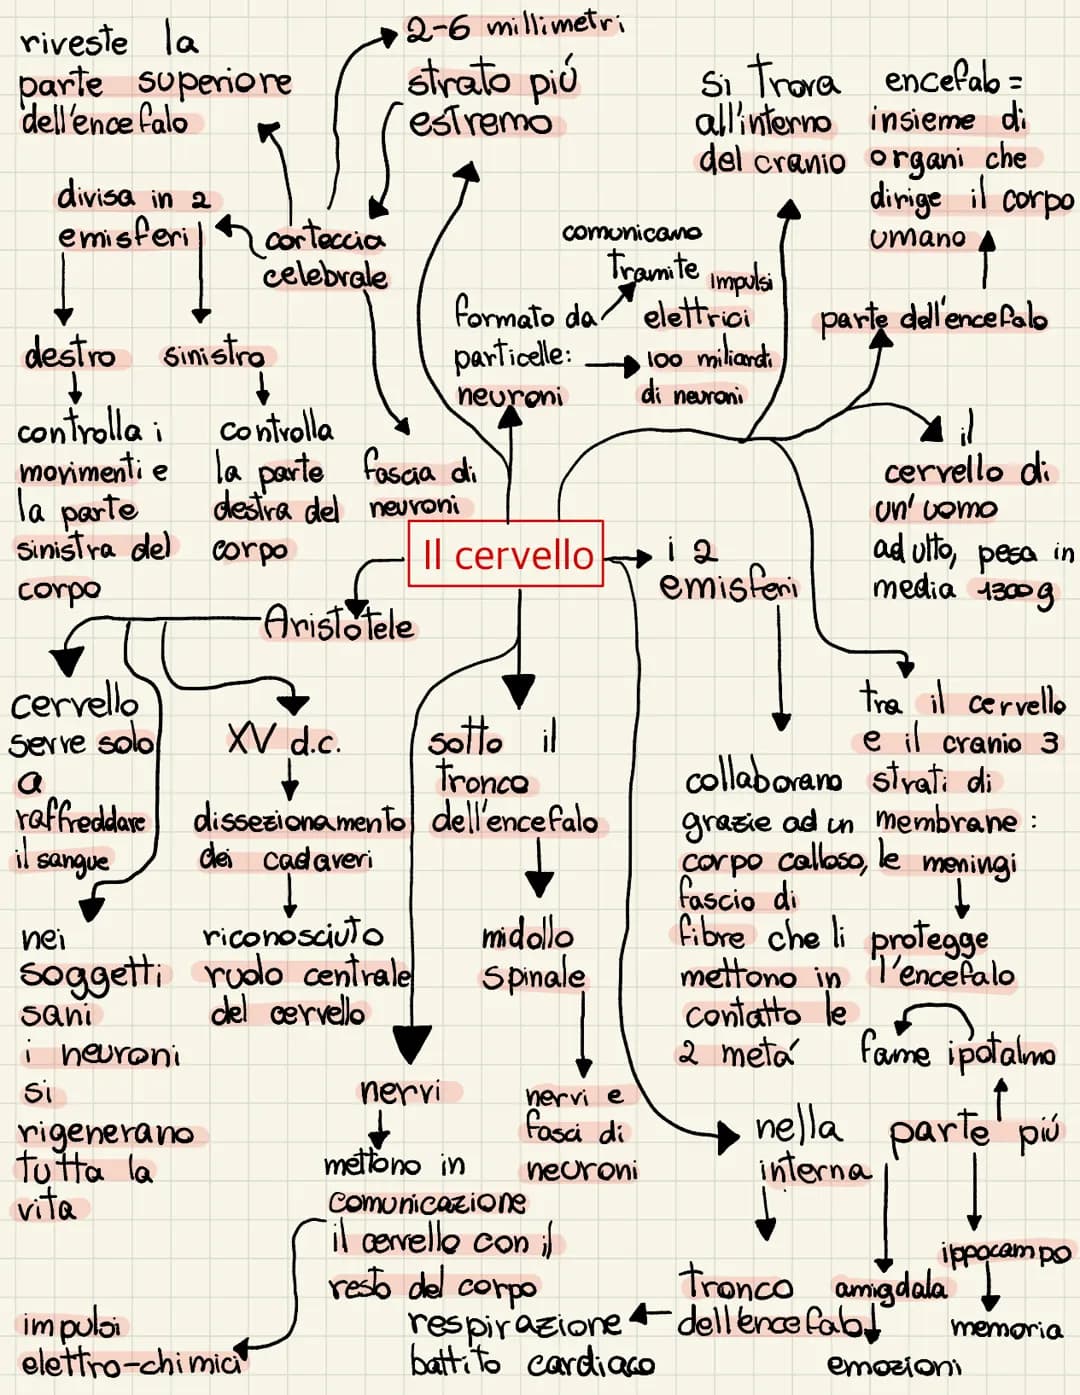 riveste la
parte superiore
dell'encefalo
2-6 millimetri
strato più
estremo
si trova
all'interno
del cranio
encefalo =
insieme di
organi che
dirige il corpo
umano
divisa in 2
emisferi
corteccia
celebrale
comunicano
tramite impulsi
elettrici
formato da
particelle:
neuroni
100 miliardi
di neuroni
parte dell'encefalo
destro
sinistro
controlla i
movimenti e
la parte
sinistra del
corpo
controlla
la parte
destra del
corpo
fascia di
neuroni
il
cervello di
un'uomo
adulto, pesa in
media 1300g
Il cervello
i 2
emisferi
Aristotele
cervello
serve solo
a
raffreddare
il sangue
XV d.c.
dissezionamento
dei cadaveri
riconosciuto
ruolo centrale
del cervello
sotto il
tronco
dell'encefalo
midollo
spinale
nervi e
fasci di
neuroni
collaborano
grazie ad un
corpo calloso,
fascio di
fibre che li
mettono in
contatto le
2 metà
tra il cervello
e il cranio 3
strati di
membrane:
le meningi
protegge
l'encefalo
nei
soggetti
sani
i neuroni
si
rigenerano
tutta la
vita
nervi
mettono in
comunicazione
il cervello con il
resto del corpo
impulsi
elettro-chimici
fame ipotalmo
nella parte più
interna
tronco
dell'encefalo
respirazione
battito cardiaco
amigdala
emozioni
ippocampo
memoria